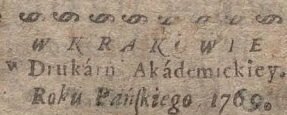 W KRAKOWIE
w Drukárn Akádemickiey.
Roku Pańſkiego, 1769.